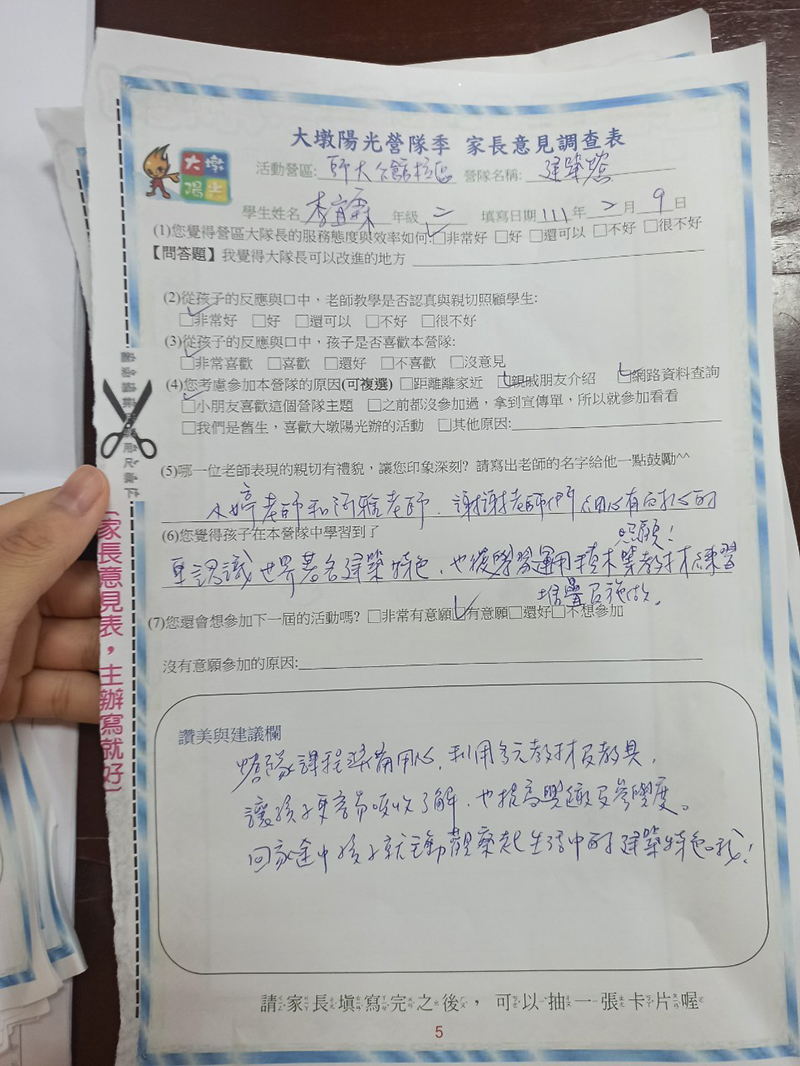 大墩陽光營隊季 家長意見調查表
大墩
陽光
活動營區:師大公館校區 營隊名稱:建築營
學生姓名 李宜霖 年級 二 填寫日期 111 年 2 月 9 日
(1)您覺得營區大隊長的服務態度與效率如何 ☑非常好 □好 □還可以 □不好 □很不好
【問答題】我覺得大隊長可以改進的地方
(2)從孩子的反應與口中，老師教學是否認真與親切照顧學生:
☑非常好 □好 □還可以 □不好 □很不好
(3)從孩子的反應與口中，孩子是否喜歡本營隊:
☑非常喜歡 □喜歡 □還好 □不喜歡 □沒意見
(4)您考慮參加本營隊的原因(可複選) □距離離家近 ☑親戚朋友介紹 ☑網路資料查詢
☑小朋友喜歡這個營隊主題 □之前都沒參加過，拿到宣傳單，所以就參加看看
□我們是舊生，喜歡大墩陽光辦的活動 □其他原因:
(5)哪一位老師表現的親切有禮貌，讓您印象深刻? 請寫出老師的名字給他一點鼓勵^^
老師和 老師．謝謝老師們用心有耐心的
照顧！
(6)您覺得孩子在本營隊中學習到了
更認識世界著名建築特色，也從學習運用積木等教材練習
培疊及施做。
(7)您還會想參加下一屆的活動嗎? □非常有意願 ☑有意願 □還好 □不想參加
沒有意願參加的原因:
讚美與建議欄
營隊課程準備用心，利用多元教材及教具，
讓孩子更容易吸收了解，也提高興趣及參與度。
回家途中孩子就主動觀察起生活中的建築特色哦！
請家長填寫完之後，可以抽一張卡片喔
5
(家長意見表，主辦寫就好)